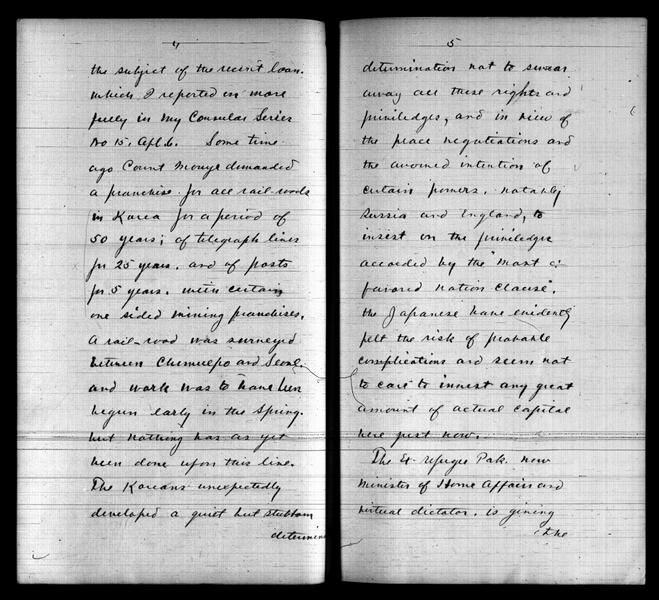 4
the subject of the recent loan.
which I reported on more
fully in my Consular Series
No 15, Apl. 6. Some time
ago Count Inouye demanded
a franchise for all rail-roads
in Korea for a period of
50 years; of telegraph lines
for 25 years, and of posts
for 5 years, with certain
one sided mining franchises.
A rail-road was surveyed
between Chemulpo and Seoul
and work was to have been
begun early in the Spring.
but nothing has as yet
been done upon this line.
The Koreans unexpectedly
developed a quiet but stubborn
determin
5
determination not to swear
away all these rights and
priviledges, and in view of
the peace negotiations and
the avowed intention of
certain powers, notably
Russia and England, to
insist on the priviledge
accorded by the "most
favored nation clause".
the Japanese have evidently
felt the risk of probable
complications and seem not
to care to invest any great
amount of actual capital
here just now.
The Ex-refugee Pak, now
Minister of Home Affairs and
virtual dictator, is giving
the